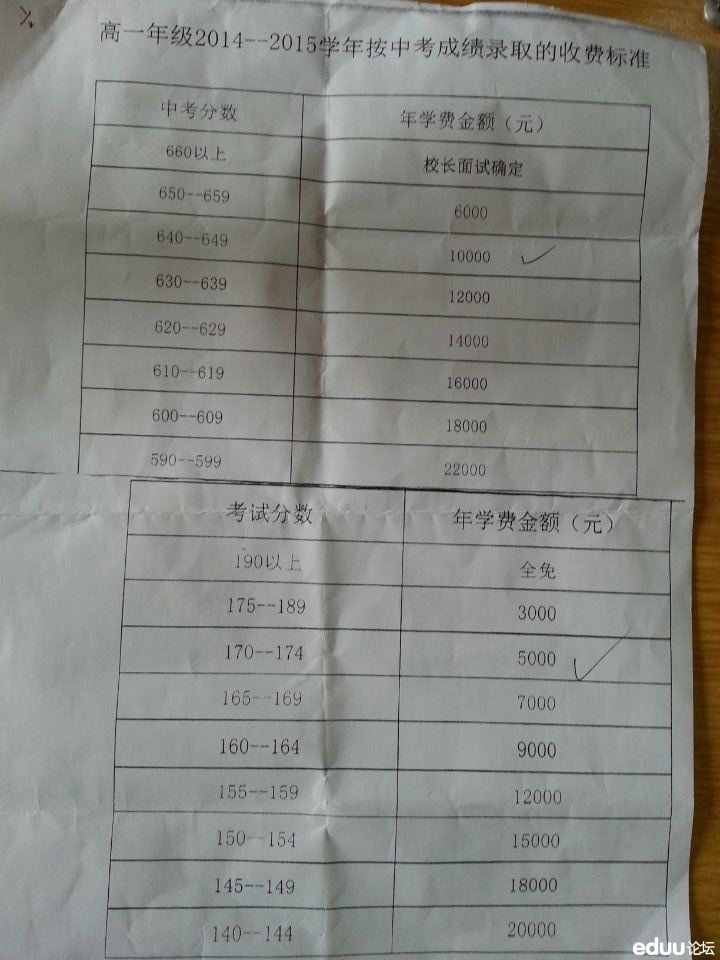 高一年级2014--2015学年按中考成绩录取的收费标准
中考分数 年学费金额（元）
660以上 校长面试确定
650--659 6000
640--649 10000
630--639 12000
620--629 14000
610--619 16000
600--609 18000
590--599 22000
考试分数 年学费金额（元）
190以上 全免
175--189 3000
170--174 5000
165--169 7000
160--164 9000
155--159 12000
150--154 15000
145--149 18000
140--144 20000
eduu论坛